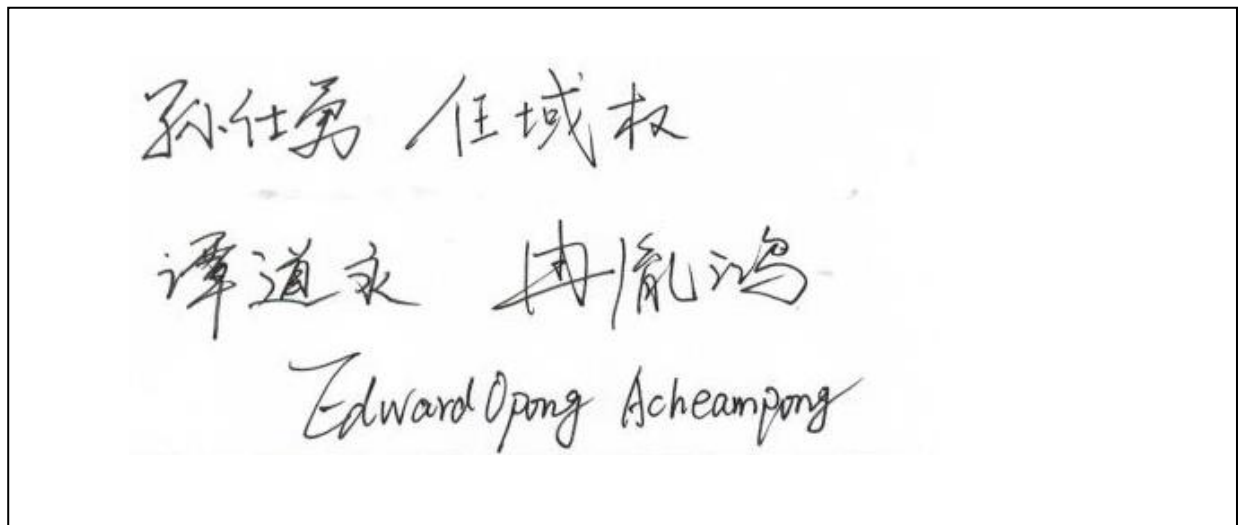 孙仕勇 任域权
谭道永 冉胤鸿
Edward Opong Acheampong